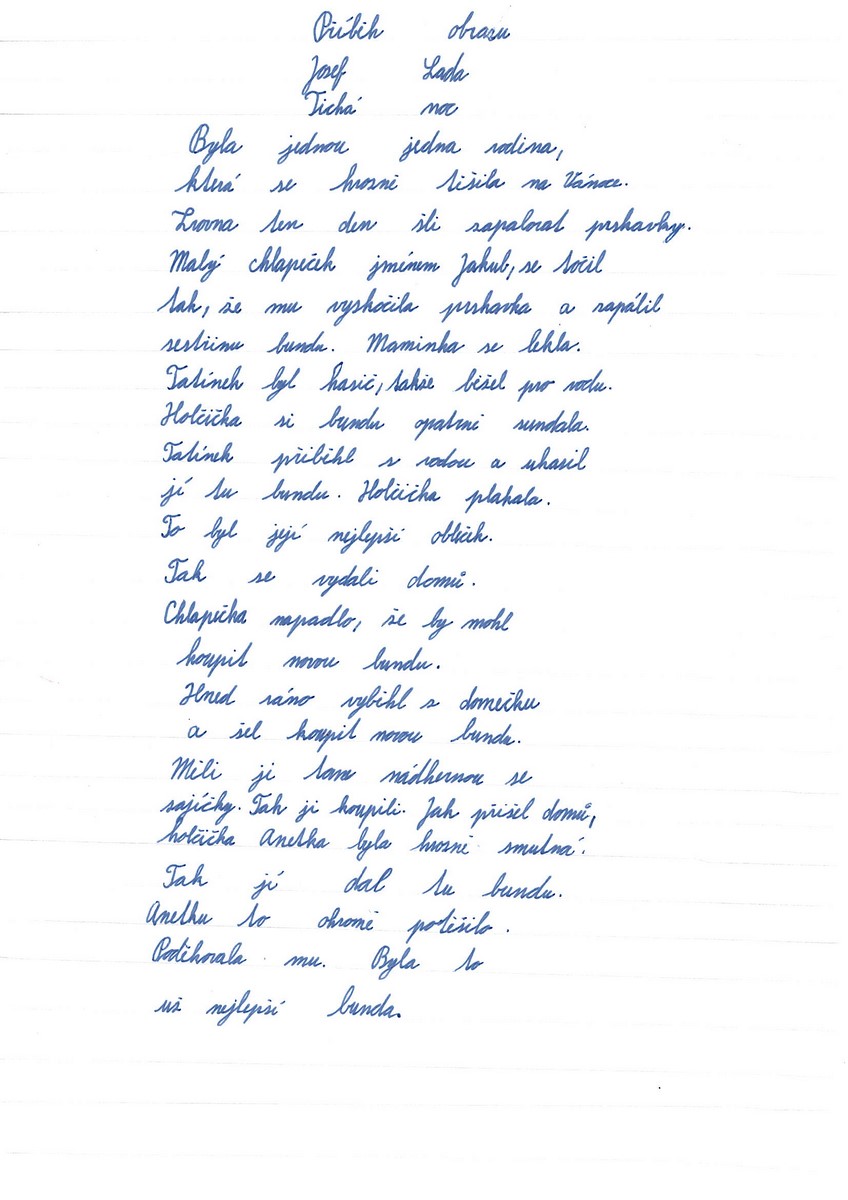 Příběh obrazu
Josef Lada
Tichá noc
Byla jednou jedna rodina,
která se hrozně těšila na Vánoce.
Zrovna ten den šli zapalovat prskavky.
Malý chlapeček jménem Jakub, se točil
tak, že mu vyskočila prskavka a zapálil
sestřinu bundu. Maminka se lekla.
Tatínek byl hasič, takže běžel pro vodu.
Holčička si bundu opatrně sundala.
Tatínek přiběhl s vodou a uhasil
jí tu bundu. Holčička plakala.
To byl její nejlepší obleček.
Tak se vydali domů.
Chlapečka napadlo, že by mohl
koupit novou bundu.
Hned ráno vyběhl z domečku
a šel koupit novou bundu.
Měli ji tam nádhernou se
zajíčky. Tak ji koupili. Jak přišel domů,
holčička Anetka byla hrozně smutná.
Tak jí dal tu bundu.
Anetku to ohromě potěšilo.
Poděkovala mu. Byla to
už nejlepší bunda.